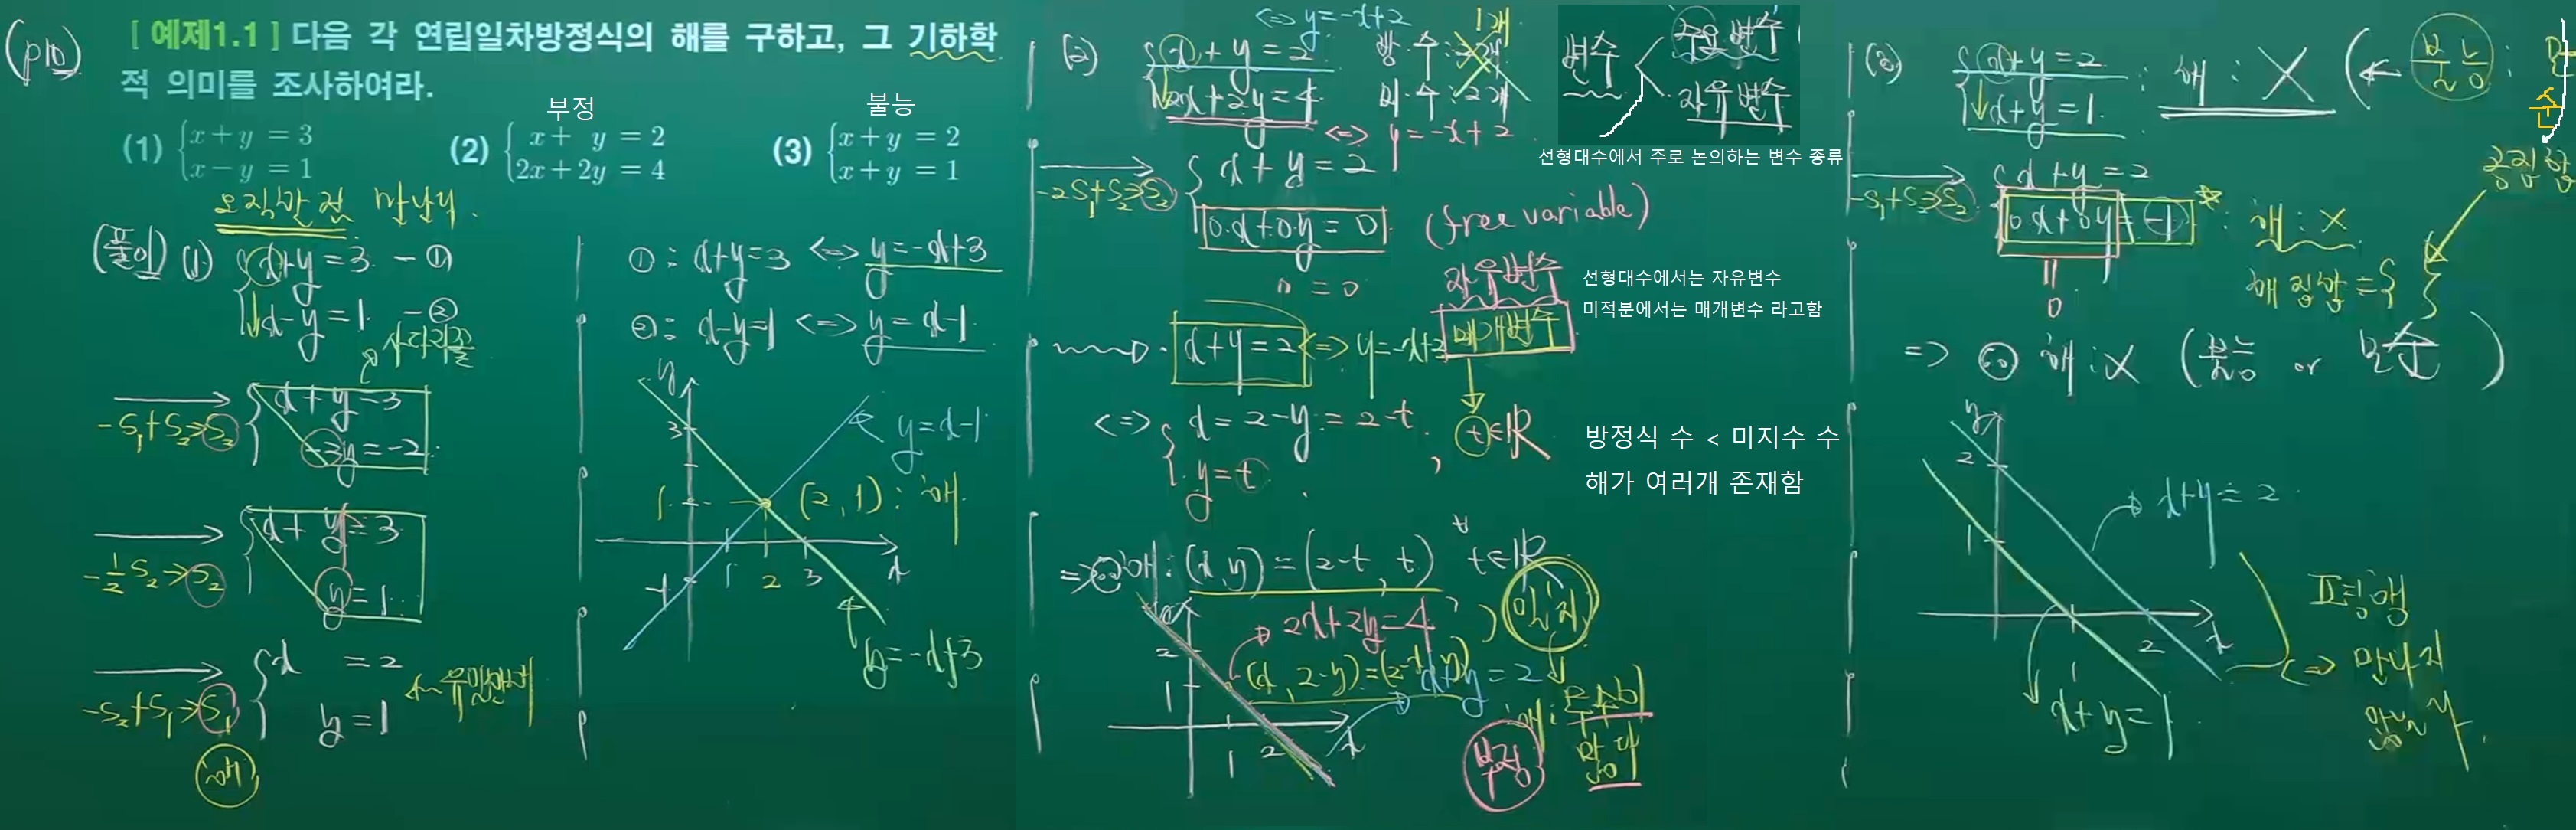 (p10)
[ 예제1.1 ] 다음 각 연립일차방정식의 해를 구하고, 그 기하학
적 의미를 조사하여라.
부정
불능
(1) { x + y = 3
x − y = 1
(2) { x + y = 2
2x + 2y = 4
(3) { x + y = 2
x + y = 1
오직한 점 만난다.
(풀이) (1) { x+y=3 - ①
x-y=1 - ②
사다리꼴
-S₁+S₂→S₂ { x+y=3
-2y=-2
-1/2 S₂→S₂ { x+y=3
y=1
-S₂+S₁→S₁ { x =2
y=1
해
① : x+y=3 <=> y=-x+3
② : x-y=1 <=> y=x-1
y
3
y=x-1
1
(2,1) : 해
1 2 3 x
-1
y=-x+3
<=> y=-x+2
(2) { x+y=2
2x+2y=4
<=> y=-x+2
방.수: 1개
미.수: 2개
변수
주요 변수
자유 변수
선형대수에서 주로 논의하는 변수 종류
-2S₁+S₂→S₂ { x+y=2
0·x+0·y=0
0=0
(free variable)
자유변수
매개변수
선형대수에서는 자유변수
미적분에서는 매개변수 라고함
x+y=2 <=> y=-x+2
<=> { x=2-y=2-t
y=t , t∈ℝ
방정식 수 < 미지수 수
해가 여러개 존재함
=> ∴ 해: (x,y)=(2-t, t) ∀t∈ℝ
2x+2y=4
일치
x+y=2
y
2
1
1 2 x
해: 무수히
많다
부정
(3) { x+y=2
x+y=1 : 해 : X (← 불능 :
순
공집합
-S₁+S₂→S₂ { x+y=2
0·x+0·y=-1 : 해 : X
0
해집합={ }
=> ∴ 해:X (불능 or 모순)
y
2
1
x+y=2
1 2 x
x+y=1
평행
<=> 만나지
않는다.